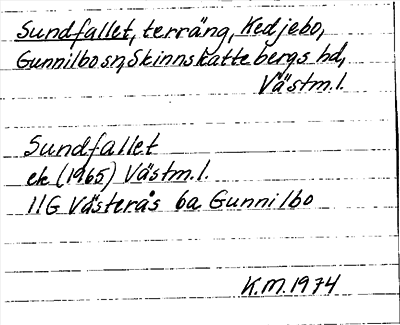 Sundfallet, terräng, Kedjebo,
Gunnilbo sn, Skinnskattebergs hd,
Västm.l.
Sundfallet
ek (1965) Västm.l.
11G Västerås 6a Gunnilbo
K.M. 1974